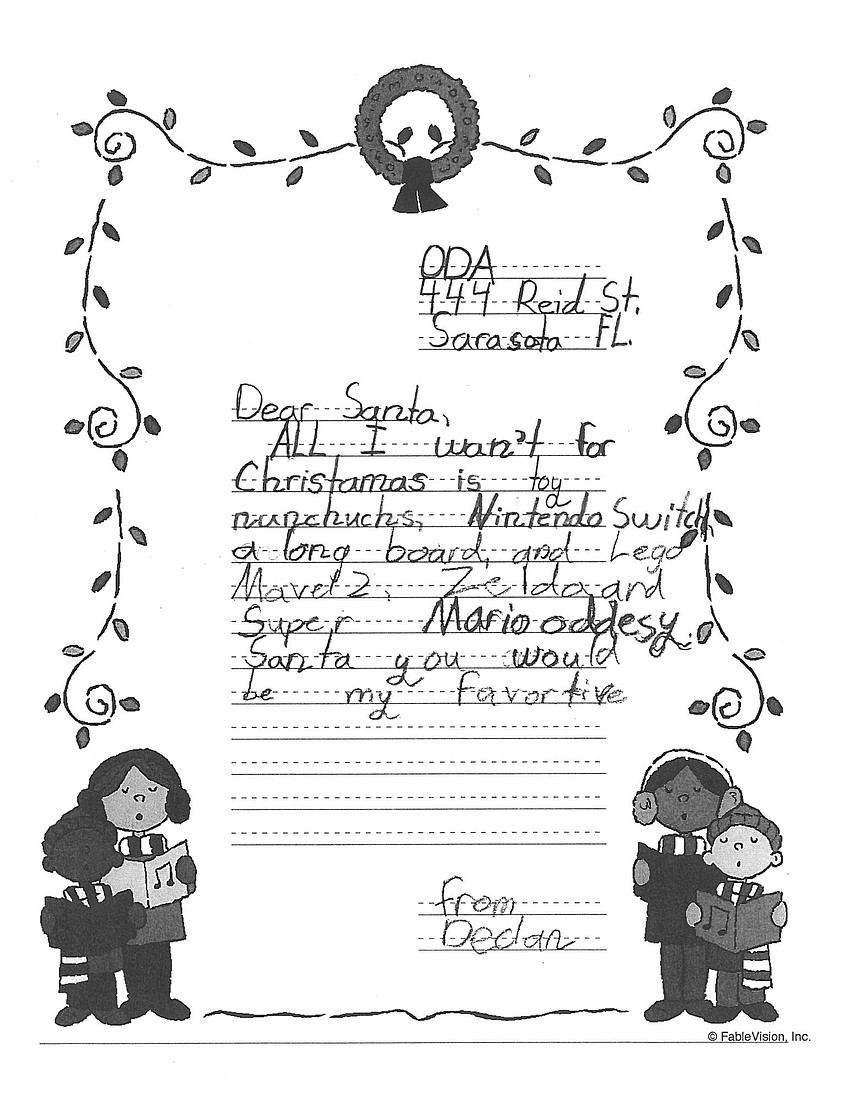 ODA
444 Reid St.
Sarasota FL.
Dear Santa,
ALL I wan't for
Christamas is toy
nunchuchs, Nintendo Switch,
a long board, and Lego
Mavel 2, Zelda and
Super Mario oddesy.
Santa you would
be my favortive
from
Declan
© FableVision, Inc.